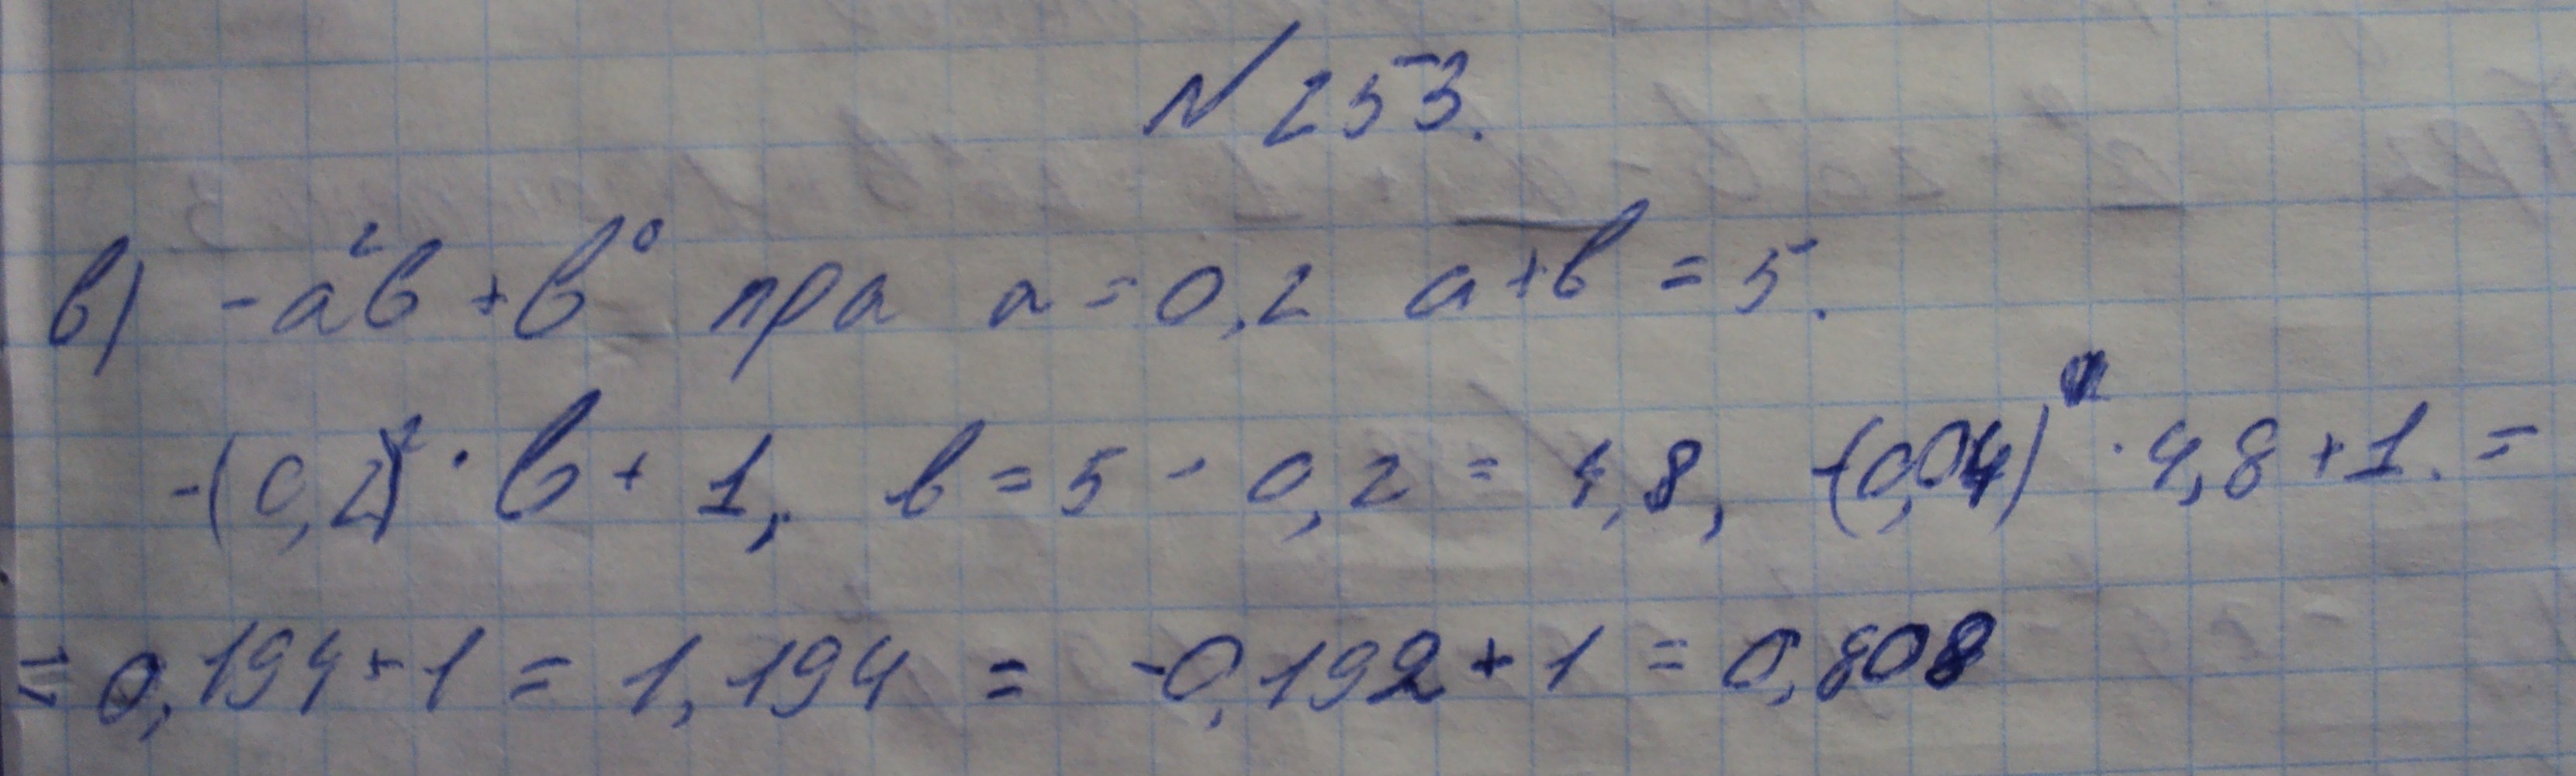 N 253.
в) -a²b + b⁰ при a = 0,2 a+b = 5.
-(0,2)² · b + 1, b = 5 - 0,2 = 4,8, -(0,04) · 4,8 + 1. =
= 0,194 + 1 = 1,194 = -0,192 + 1 = 0,808